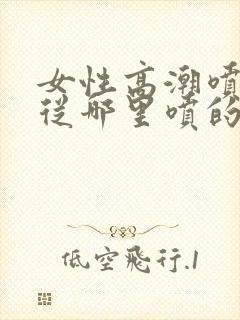 女性高潮噴
從哪里噴的
低空飛行.1